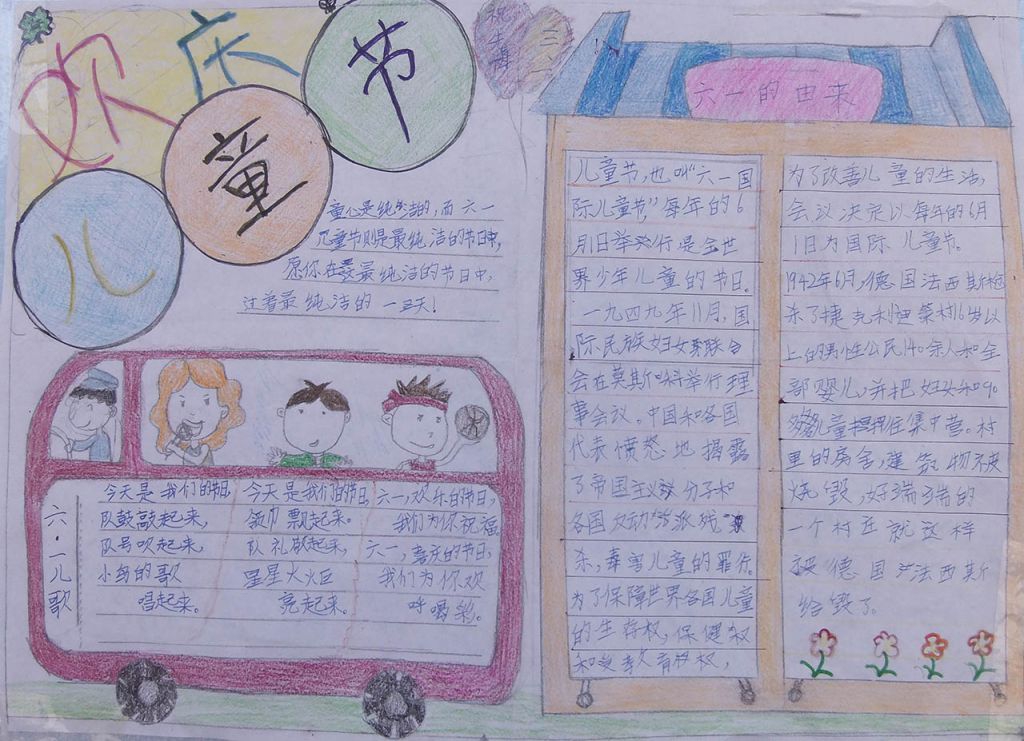 欢庆
节
童
儿
三、一
六一的由来
童心是纯洁的,而六一
儿童节则是最纯洁的节日,
愿你在最最纯洁的节日中,
过着最纯洁的一天!
六·一儿歌
今天是我们的节日,
队鼓敲起来,
队号吹起来,
小的歌
唱起来。
今天是我们的节日,
领巾飘起来。
队礼敬起来,
星星火炬
亮起来。
六一,欢乐的节日,
我们为你祝福,
六一,喜庆的节日,
我们为你欢
呼喝彩。
儿童节,也叫“六一国
际儿童节”每年的6
月1日举行是全世
界少年儿童的节日。
一九四九年11月,国
际民族妇女联合
会在莫斯科举行理
事会议。中国和各国
代表愤怒地揭露
了帝国主义分子和
各国反动派残
杀,毒害儿童的罪行。
为了保障世界各国儿童
的生存权,保健权
和受教育权,
为了改善儿童的生活,
会议决定以每年的6月
1日为国际儿童节。
1942年6月,德国法西斯枪
杀了捷克利迪策村16岁以
上的男性公民140余人和全
部婴儿,并把妇女和90
多名儿童押往集中营。村
里的房舍,建筑物被
烧毁,好端端的
一个村庄就这样
被德国法西斯
给毁了。